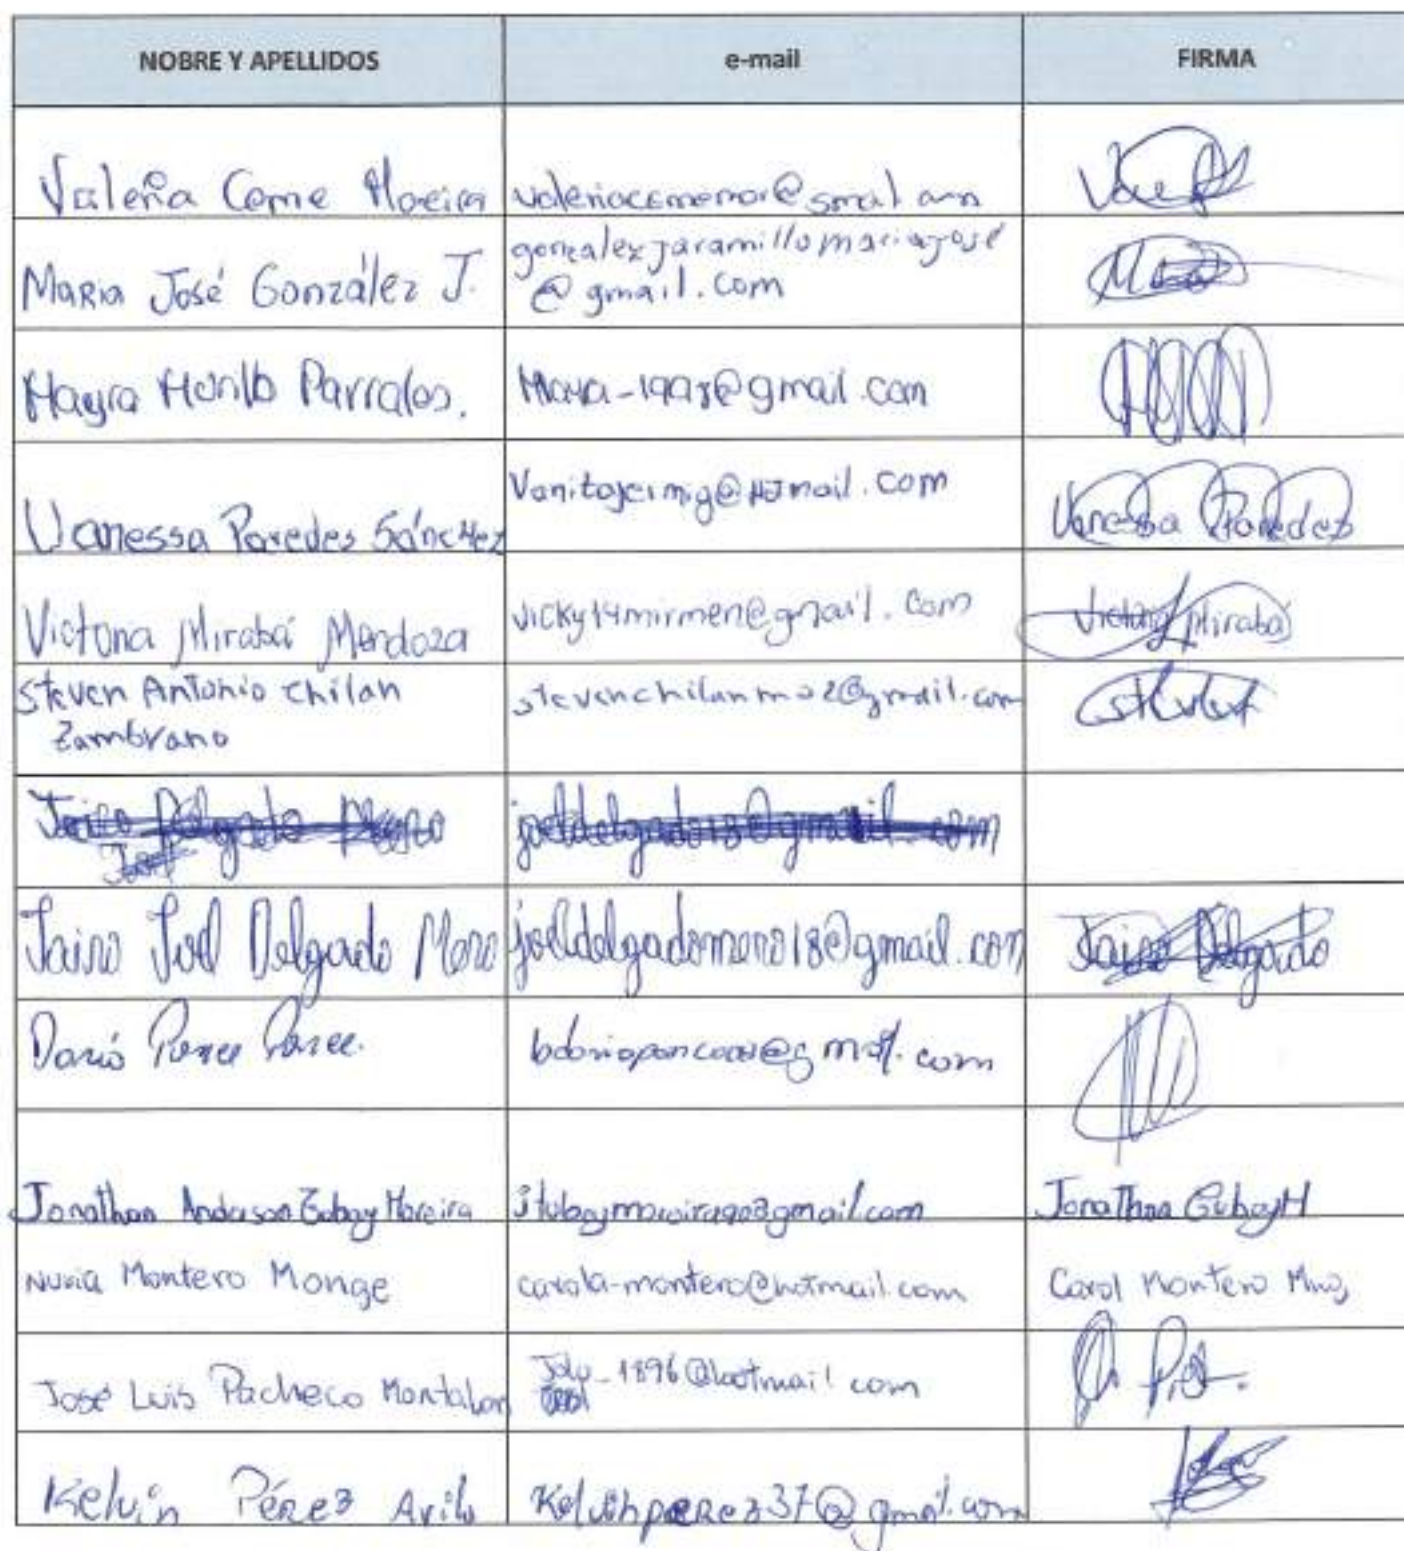 NOBRE Y APELLIDOS e-mail FIRMA
Valeria Come Moreira valeriacomemor@gmail.com
Maria José González J. gonzalezjaramillomariajosé
@gmail.com
Mayra Morillo Parrales. Maya-1998@gmail.com
Vanessa Paredes Sánchez @Hotmail.com Vanessa Paredes
Victoria Mirabá Mendoza vicky14mirmen@gmail.com Victoria Mirabá
Steven Antonio Chilan stevenchilanm02@gmail.com
Zambrano
Jairo Delgado Mero joeldelgado18@gmail.com
Joel
Jairo Joel Delgado Mero joeldelgadomero18@gmail.com Jairo Delgado
Dario Ponce Ponce. com
Jonathan Anderson Tubay Moreira Jonathan Tubay M
Nuria Montero Monge carola-montero@hotmail.com Carol Montero Mng
José Luis Pacheco Montalvan Jolu_1896@hotmail.com
Kelvin Pérez Avila Kelvinperez37@gmail.com